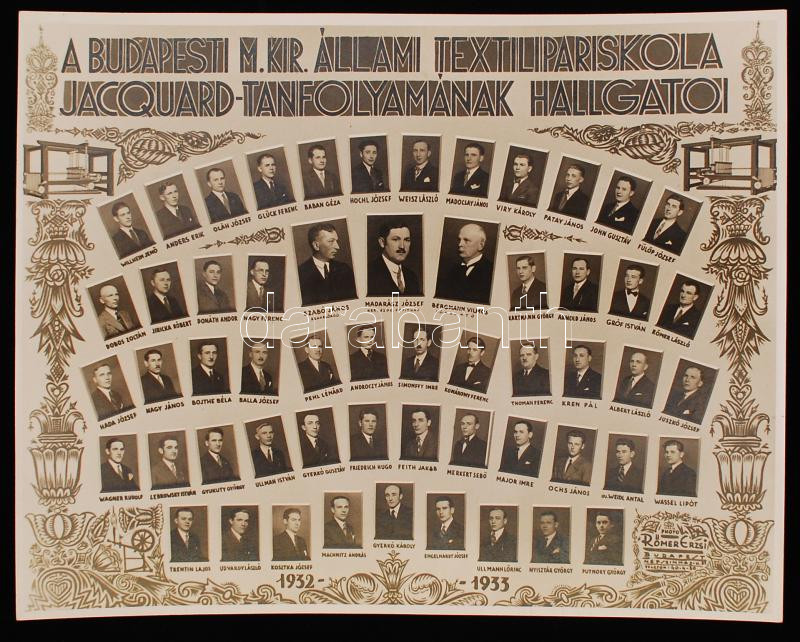 A BUDAPESTI M. KIR. ÁLLAMI TEXTILIPARISKOLA
JACQUARD-TANFOLYAMÁNAK HALLGATÓI
WILLHEIM JENŐ
ANDERS ERIK
OLÁH JÓZSEF
GLÜCK FERENC
BABAN GÉZA
HOCHL JÓZSEF
WEISZ LÁSZLÓ
MADOCSAY JÁNOS
VIRY KÁROLY
PATAY JÁNOS
JOHN GUSZTÁV
FÜLÖP JÓZSEF
DOBOS ZOLTÁN
JIRICHA RÓBERT
DONÁTH ANDOR
NAGY FERENC
SZABÓ JÁNOS
MADARÁSZ JÓZSEF
BERGMANN VILMOS
HARTMANN GYÖRGY
ARNOLD JÁNOS
GRÓF ISTVÁN
RÓMER LÁSZLÓ
darabanth
HADA JÓZSEF
NAGY JÁNOS
BOJTHE BÉLA
BALLA JÓZSEF
PEHL LÉNÁRD
ANDRÓCZY JÁNOS
SIMONFFY IMRE
KOMÁROMY FERENC
THOMAN FERENC
KREN PÁL
ALBERT LÁSZLÓ
JUSZKÓ JÓZSEF
WAGNER RUDOLF
LEBROWSKY ISTVÁN
GYUKUTY GYÖRGY
ULLMAN ISTVÁN
GYERKÓ GUSZTÁV
FRIEDRICH HUGÓ
FEITH JAKAB
MERKERT SEBŐ
MAJOR IMRE
OCHS JÁNOS
DR. WEIDL ANTAL
WASSEL LIPÓT
TRENTIN LAJOS
UDVARDY LÁSZLÓ
KOSZTKA JÓZSEF
MACHNITZ ANDRÁS
GYERKÓ KÁROLY
EINGELHARDT JÓZSEF
ULLMANN LŐRINC
NYISZTÁR GYÖRGY
PUTNOKY GYÖRGY
1932-
-1933
PHOTO
RÓMER ERZSI
BUDAPEST